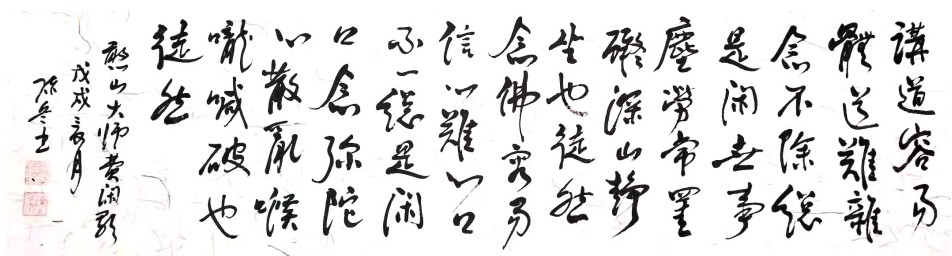 講道容易
體道難雜
念不除總
是闲世事
塵勞常罣
礙深山靜
坐也徒然
念佛容易
信心難心口
不一總是闲
口念弥陀
心散亂喉
嚨喊破也
徒然
憨山大师费闲歌
戊戌夏月